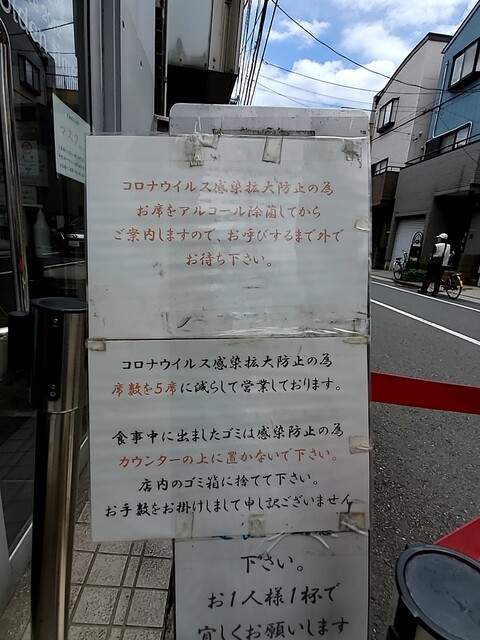 マスク
コロナウイルス感染拡大防止の為
お席をアルコール除菌してから
ご案内しますので、お呼びするまで外で
お待ち下さい。
コロナウイルス感染拡大防止の為
席数を5席に減らして営業しております。
食事中に出ましたゴミは感染防止の為
カウンターの上に置かないで下さい。
店内のゴミ箱に捨てて下さい。
お手数をお掛けしまして申し訳ございません
下さい。
お1人様1杯で
宜しくお願いします